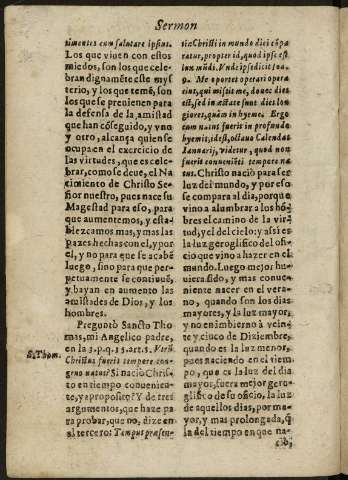 Sermon
timentes eum salutare ipsius.
Los que viuen con estos
miedos, son los que cele-
bran dignamẽte este mys
terio, y los que temẽ, son
los que se preuienen para
la defensa de la amistad
que han cõseguido, y vno
y otro, alcança quien se
ocupa en el exercicio de
las virtudes, que es cele-
brar, como se deue, el Na
cimiento de Christo Se-
ñor nuestro, pues nace su
Magestad para eso, para
que aumentemos, y esta-
blezcamos mas, y mas las
pazes hechas con el, y por
el, y no para que se acabẽ
luego, sino para que per-
petuamente se continuẽ,
y bayan en aumento las
amistades de Dios, y los
hombres.
Preguntò Sancto Tho
mas, mi Angelico padre,
S. Thom.
en la 3. p. q. 35. art. 8. Vtrũ
Christus fuerit tempore con-
gruo natus? Si naciò Chris-
to en tiempo conuenien-
te, y a proposito? Y de tres
argumentos, que haze pa
ra probar, que no, dize en
al tercero: Tempus præsen-
tiæ Christi in mundo diei cõpa
ratur, propter id, quod ipse est
lux mũdi. Vnde ipse dicit Ioa.
9. Me oportet operari opera
eius, qui misit me, donec dies
est, sed in æstate sunt dies lon
giores, quàm in hyeme. Ergo
cum natus fuerit in profundo
hyemis, idest, octauo Calendas
Ianuarij, videtur, quod non
fuerit conueniẽti tempore na
tus. Christo naciò para ser
luz del mundo, y por eso
se compara al dia, porque
vino a alumbrar a los hõ-
bres el camino de la vir-
tud, y el del cielo: y asi es
la luz geroglifico del ofi-
cio que vino a hazer en el
mundo. Luego mejor hu-
uiera sido, y mas conue-
niente nacer en el vera-
no, quando son los dias
mayores, y la luz mayor,
y no en imbierno à vein-
te y cinco de Diziembre,
quando es la luz menor,
pues naciendo en el tiem-
po, que es la luz del dia
mayor, fuera mejor gero-
glifico de su oficio, la luz
de aquellos dias, por ma-
yor, y mas prolongada, q̃
la del tiempo en que na-